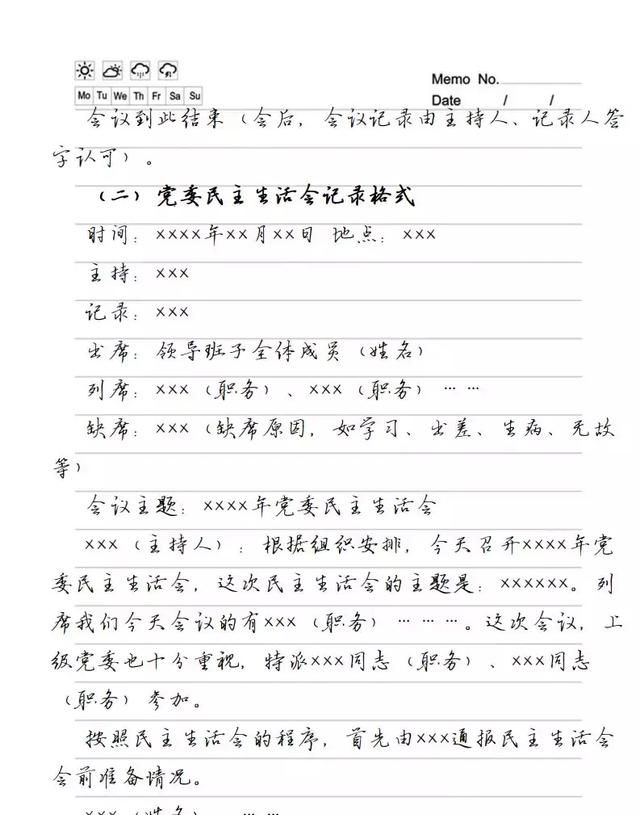 Memo No.
Mo Tu We Th Fr Sa Su
Date / /
会议到此结束（会后，会议记录由主持人、记录人签
字认可）。
（二）党委民主生活会记录格式
时间：××××年××月××日 地点：×××
主持：×××
记录：×××
出席：领导班子全体成员（姓名）
列席：×××（职务）、×××（职务）……
缺席：×××（缺席原因，如学习、出差、生病、无故
等）
会议主题：××××年党委民主生活会
×××（主持人）：根据组织安排，今天召开××××年党
委民主生活会，这次民主生活会的主题是：××××××。列
席我们今天会议的有×××（职务）………。这次会议，上
级党委也十分重视，特派×××同志（职务）、×××同志
（职务）参加。
按照民主生活会的程序，首先由×××通报民主生活会
会前准备情况。
×××（姓名）……